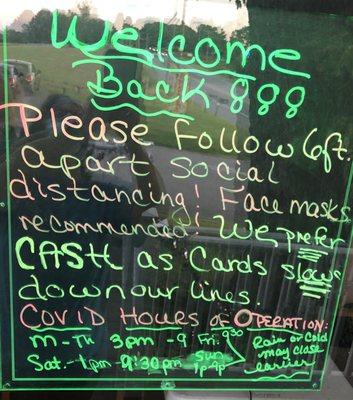 Welcome
Back!!!
Please follow 6ft.
apart social
distancing! Face masks
recommended! We prefer
CASH as Cards slows
down our lines.
COVID HOURS of OPERATION:
M-TH 3pm-9 Fri. 9:30
Sat.-1pm-9:30pm Sun 1p-9p
Rain or Cold
may close
earlier